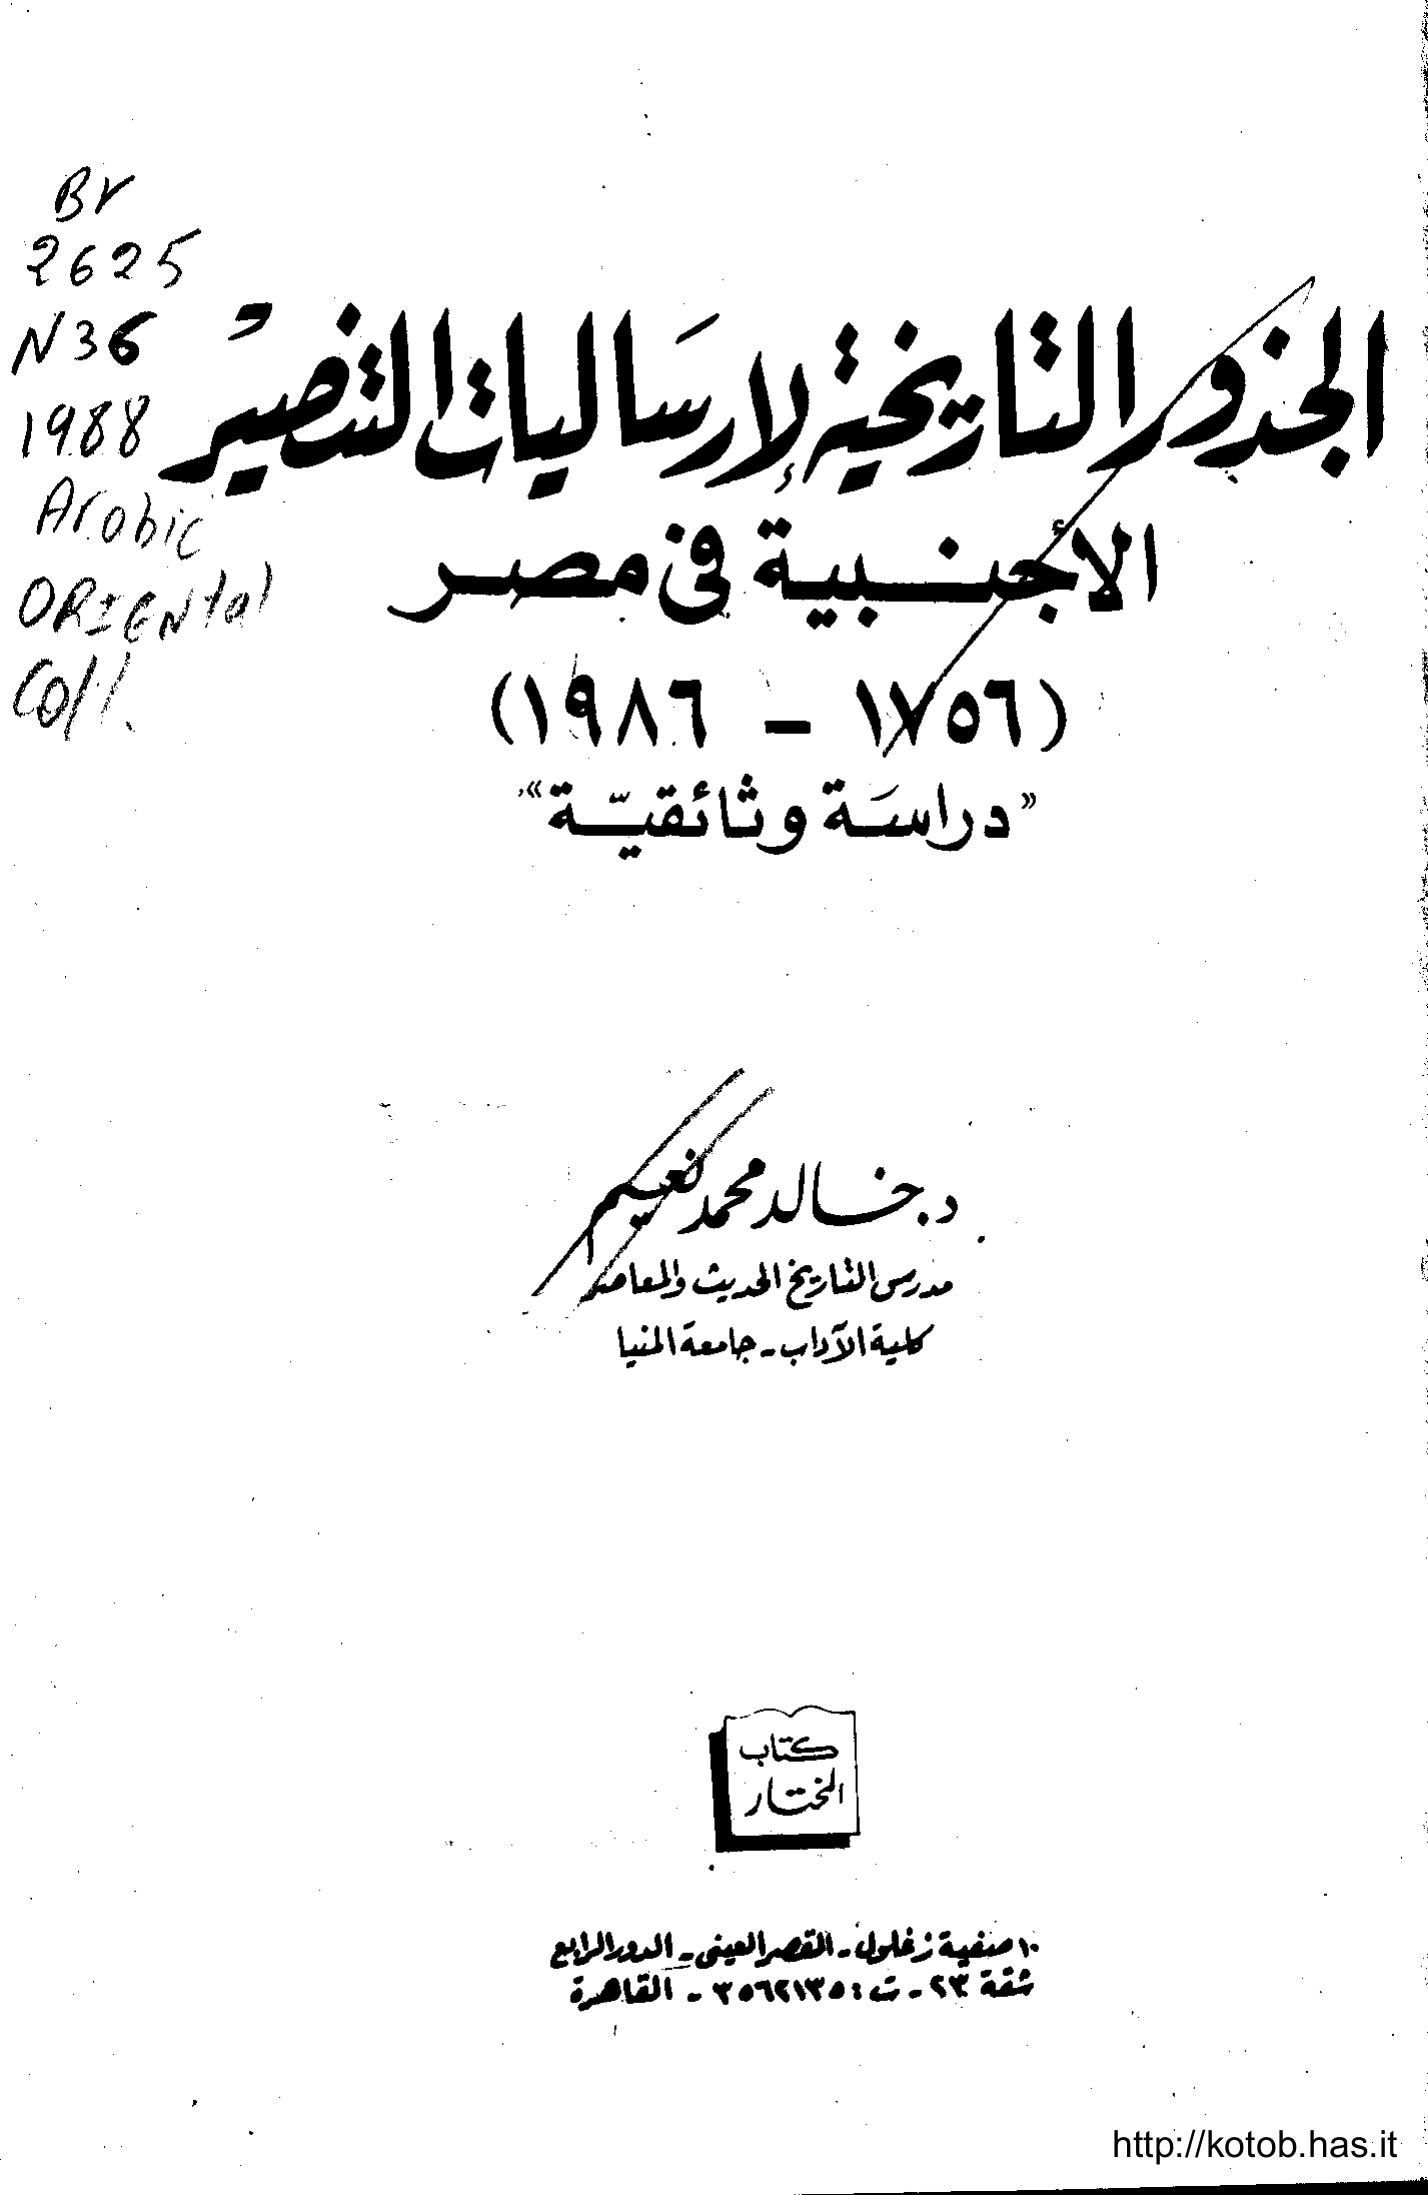 Br
2625
N36
1988
Arabic
ORIENtal
Coll.
الجذور التاريخية لإرساليات التنصير
الأجنبية فى مصر
(١٧٥٦ – ١٩٨٦)
«دراسة وثائقية»
د. خالد محمد نعيم
مدرس التاريخ الحديث والمعاصر
كلية الآداب - جامعة المنيا
كتاب
المختار
١٠ صفية زغلول - القصر العينى - الدور الرابع
شقة ٢٣ - ت : ٣٥٦٢١٣٥ - القاهرة
http://kotob.has.it